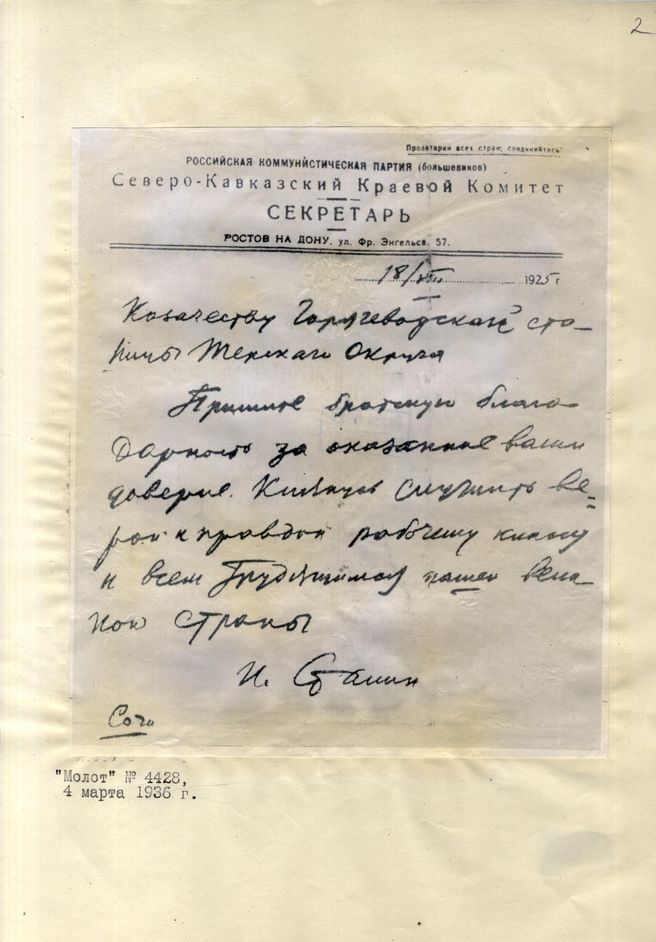 2
Пролетарии всех стран, соединяйтесь!
РОССИЙСКАЯ КОММУНИСТИЧЕСКАЯ ПАРТИЯ (большевиков)
Северо-Кавказский Краевой Комитет
СЕКРЕТАРЬ
РОСТОВ НА ДОНУ, ул. Фр. Энгельса, 57.
18/VIII 1925 г
Козачеству Горячеводской ста-
ницы Терского Округа
Примите братскую благо-
дарность за оказанное вами
доверие. Клянусь служить ве-
рой и правдой рабочему классу
и всем трудящимся нашей вели-
кой страны
И. Сталин
Сочи
"Молот" № 4428,
4 марта 1936 г.